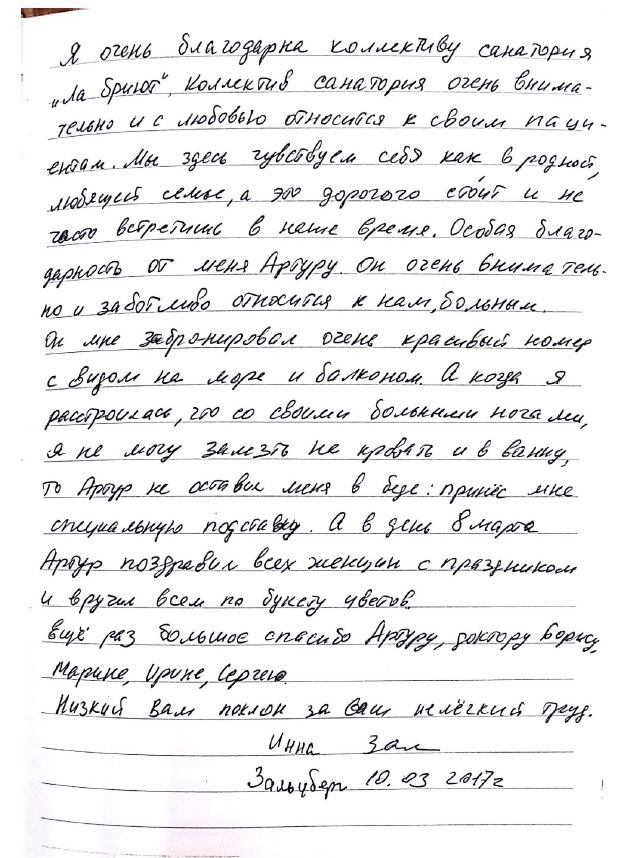 Я очень благодарна коллективу санатория
„Ла Бриют". Коллектив санатория очень внима-
тельно и с любовью относится к своим паци-
ентам. Мы здесь чувствуем себя как в родной,
любящей семье, а это дорогого сто́ит и не
часто встретишь в наше время. Особая благо-
дарность от меня Артуру. Он очень вниматель-
но и заботливо относится к нам, больным.
Он мне забронировал очень красивый номер
с видом на море и балконом. А когда я
расстроилась, что со своими больными ногами,
я не могу залезть на кровать и в ванну,
то Артур не оставил меня в беде: принёс мне
специальную подставку. А в день 8 марта
Артур поздравил всех женщин с праздником
и вручил всем по букету цветов.
Ещё раз большое спасибо Артуру, доктору Борису,
Марине, Ирине, Сергею.
Низкий Вам поклон за Ваш нелёгкий труд.
Инна
10.03 2017г